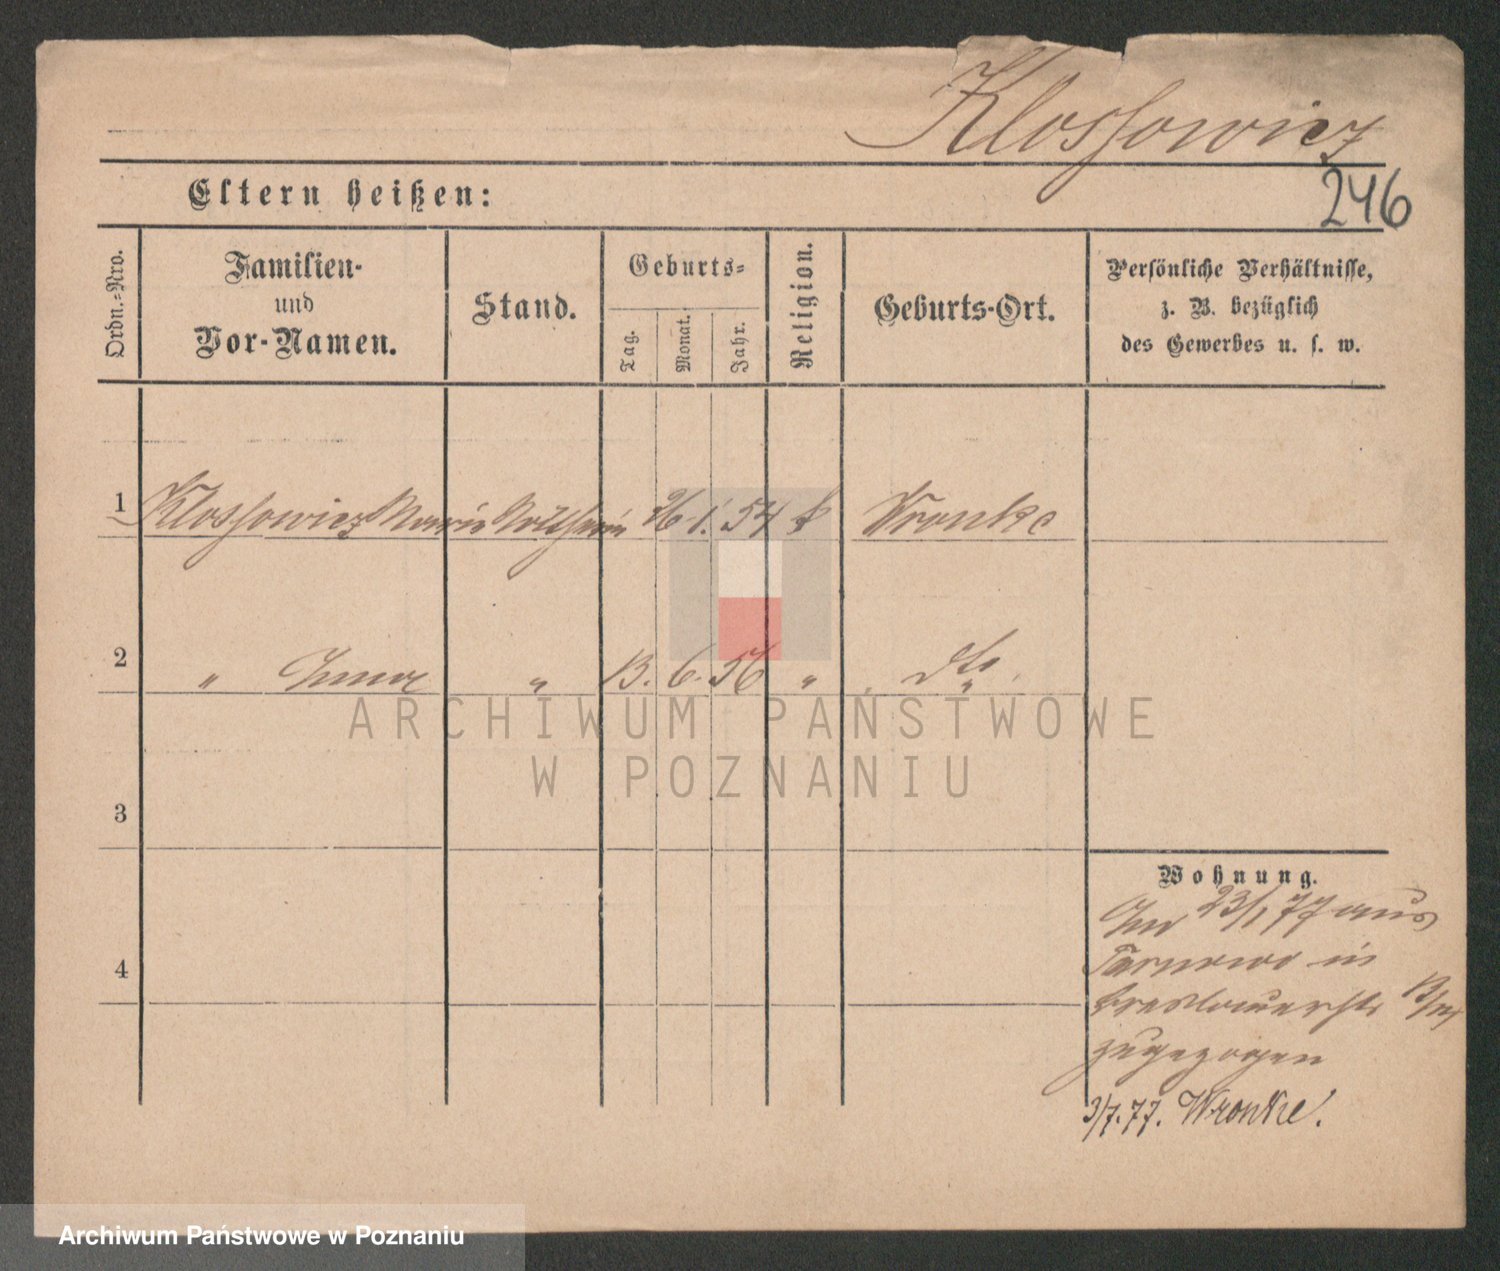 Klossowicz
246
Eltern heißen:
Ordn.-Nro.
Familien-
und
Vor-Namen.
Stand.
Geburts-
Tag.
Monat.
Jahr.
Religion.
Geburts-Ort.
Persönliche Verhältnisse,
z. B. bezüglich
des Gewerbes u. s. w.
1 Klossowicz Maria 26. 1. 54 k Wronke
2 " " 13. 6. 56 " dto
ARCHIWUM PAŃSTWOWE
W POZNANIU
3
4
Wohnung.
23/1 77 aus
Tarnowo in
Breslauerstr
zugezogen
3/7.77. Wronke.
Archiwum Państwowe w Poznaniu